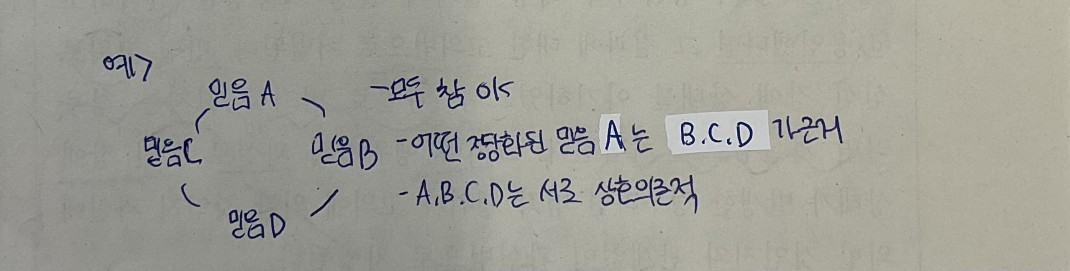 예>
믿음 A - 모두 참 이야
믿음C 믿음B - 어떤 정당화된 믿음 A는 B.C.D 가 근거
- A.B.C.D는 서로 상호의존적
믿음D